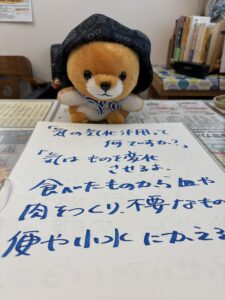 「気の気化作用って
何ですか?」
「気は ものを変化
させるよ.
食べたものから血や
肉をつくり、不要なもの
便や小水にかえる